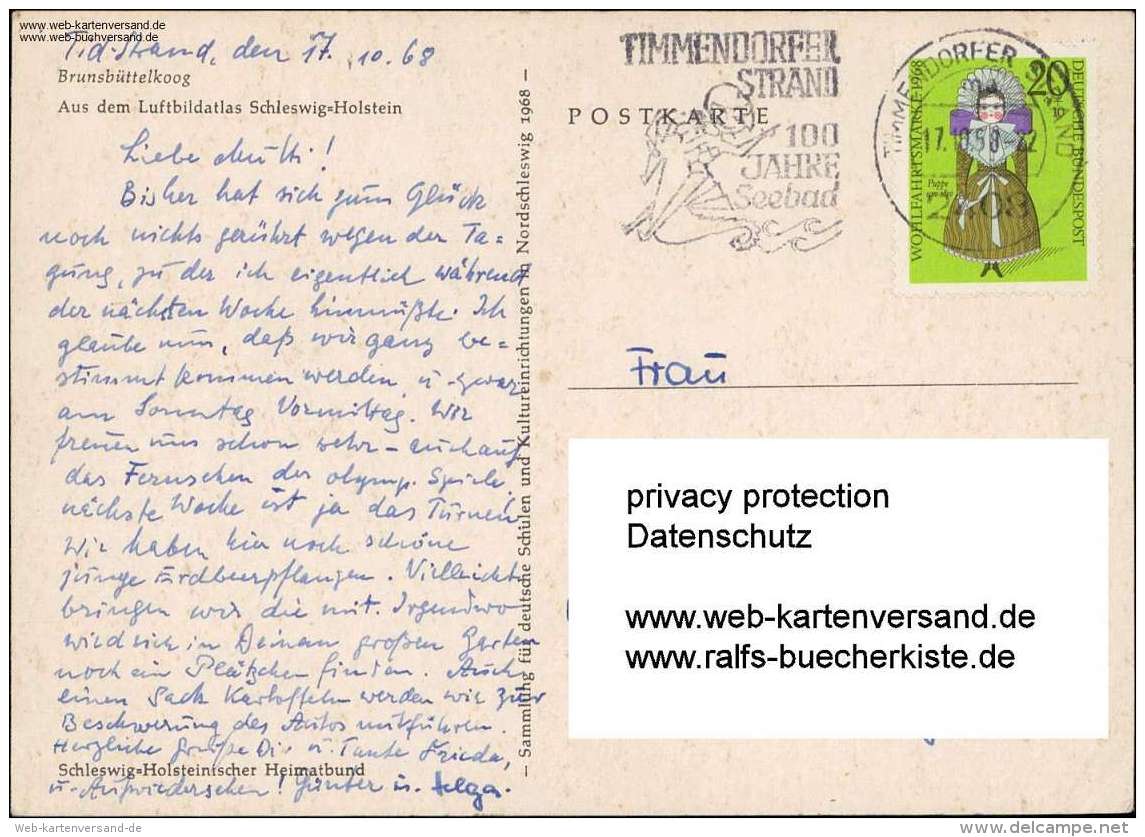 www.web-kartenversand.de
www.buecher-versand.de
Td-Strand, den 17. 10. 68
Brunsbüttelkoog
Aus dem Luftbildatlas Schleswig=Holstein
Liebe Mutti!
Bisher hat sich zum Glück
noch nichts gerührt wegen der Ta-
gung, zu der ich eigentlich während
der nächsten Woche hinmüßte. Ich
glaube nun, daß wir ganz be=
stimmt kommen werden u. zwar
am Sonntag Vormittag. Wir
freuen uns schon sehr - auch auf
das Fernsehen der olymp. Spiele,
nächste Woche ist ja das Turnen!
Wir haben hier noch schöne
junge Erdbeerpflanzen. Vielleicht
bringen wir die mit. Irgendwo
wird sich in Deinem großen Garten
noch ein Plätzchen finden. Auch
einen Sack Kartoffeln werden wir zur
Beschwerung des Autos mitführen.
Herzliche Grüße Dir u. Tante Frieda,
Schleswig=Holsteinischer Heimatbund
u. Aufwiedersehen! Günter u. Helga.
— Sammlung für deutsche Schulen und Kultureinrichtungen in Nordschleswig 1968 —
POSTKARTE
TIMMENDORFER
STRAND
100
JAHRE
Seebad
TIMMENDORFER STRAND
17.10.68-22
2408
WOHLFAHRTSMARKE 1968
20
+10
DEUTSCHE BUNDESPOST
Puppe
um 1870
Frau
privacy protection
Datenschutz
www.web-kartenversand.de
www.ralfs-buecherkiste.de
www.web-kartenversand-de
delcampe.net